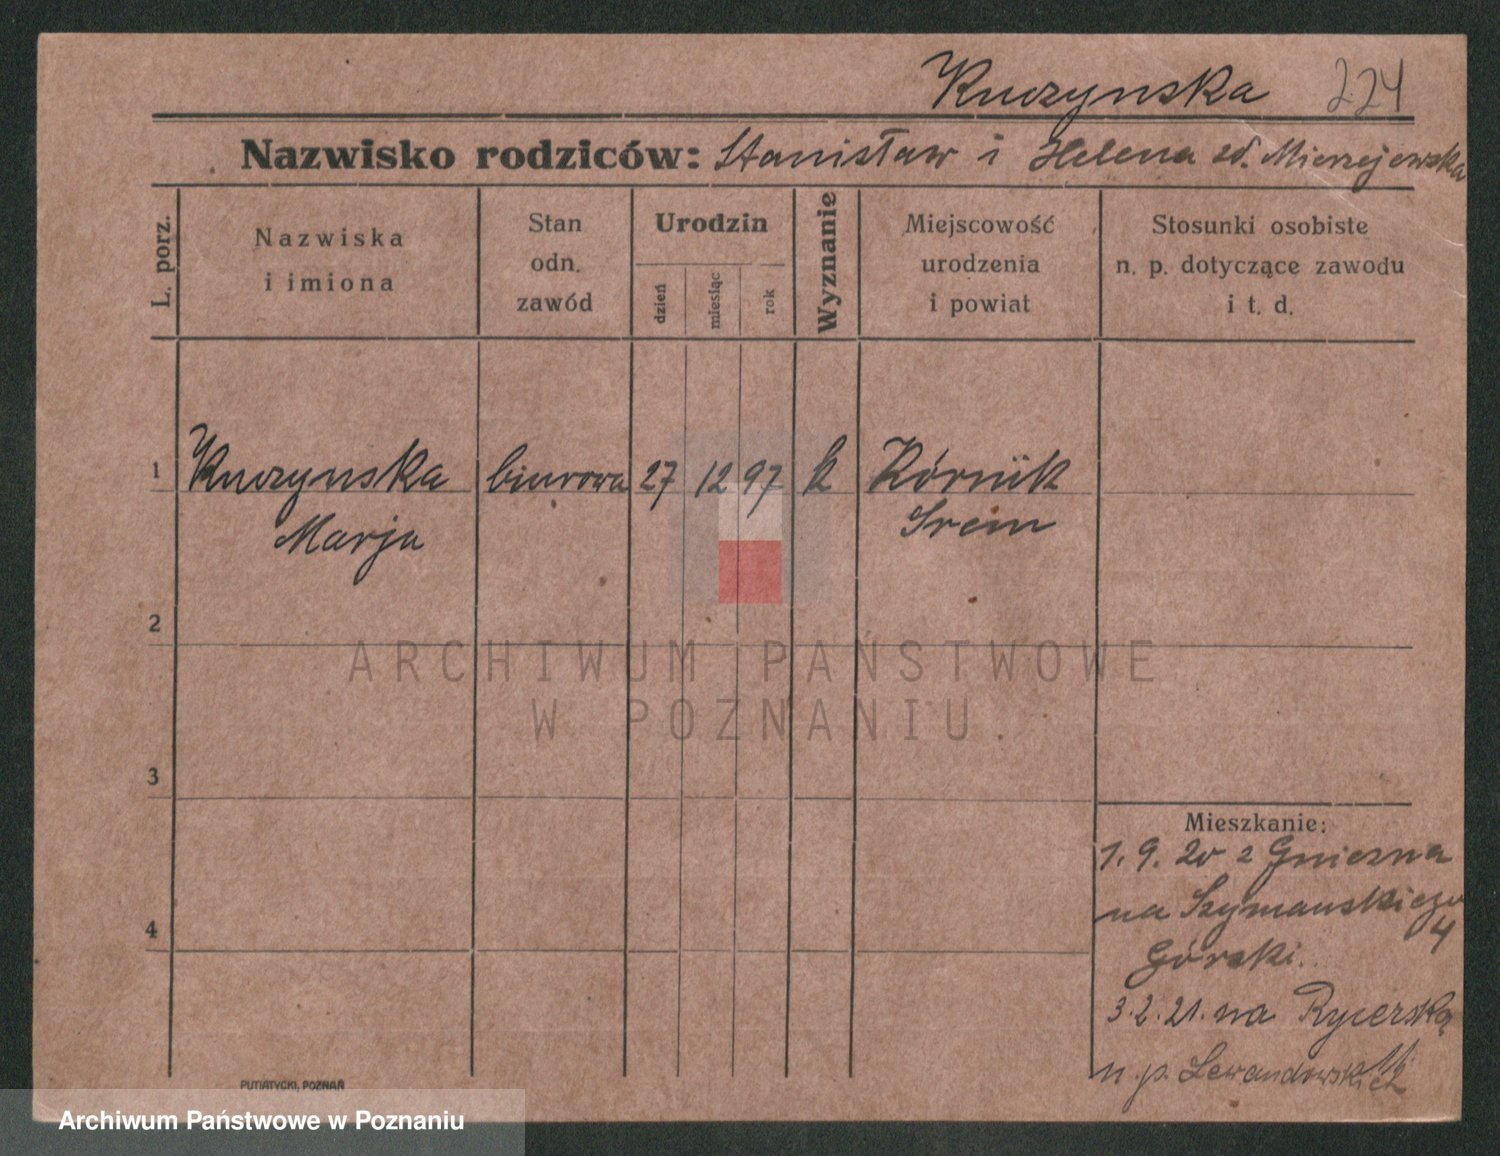 Kuczynska 224
Nazwisko rodziców: Stanisław i Helena zd. Mierzejewska
L. porz.
Nazwiska
i imiona
Stan
odn.
zawód
Urodzin
dzień
miesiąc
rok
Wyznanie
Miejscowość
urodzenia
i powiat
Stosunki osobiste
n. p. dotyczące zawodu
i t. d.
1 Kuczynska biurowa 27 12 97 k Kórnik
Marja Srem
2
ARCHIWUM PAŃSTWOWE
W POZNANIU.
3
Mieszkanie:
1. 9. 20 z Gniezna
na Szymanskiego
4
4
Górski.
3. 2. 21. na Rycerską
n. p. Lewandowski
PUTIATYCKI, POZNAŃ
Archiwum Państwowe w Poznaniu